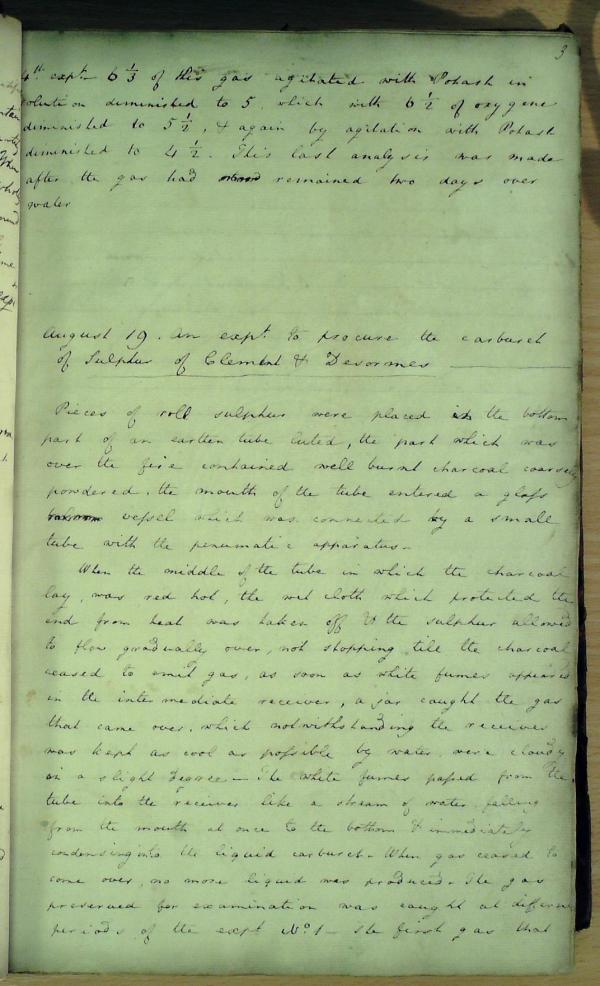 3
4th expt 6 1/3 of this gas agitated with Potash in
solution diminished to 5, which with 6 1/2 of oxygene
diminished to 5 1/2, & again by agitation with Potash
diminished to 4 1/2. This last analysis was made
after the gas had remained two days over
water
August 19. An expt to procure the carburet
of Sulphur of Clement & Desormes
Pieces of roll sulphur were placed in the bottom
part of an earthen tube luted, the part which was
over the fire contained well burnt charcoal coarsely
powdered. the mouth of the tube entered a glass
vessel which was connected by a small
tube with the penumatic apparatus.
When the middle of the tube in which the charcoal
lay, was red hot, the wet cloth which protected the
end from heat was taken off & the sulphur allowed
to flow gradually over, not stopping till the charcoal
ceased to emit gas, as soon as white fumes appeared
in the intermediate receiver, a jar caught the gas
that came over, which notwithstanding the receiver
was kept as cool as possible by water, were cloudy
in a slight degree - The white fumes passed from the
tube into the receiver like a stream of water falling
from the mouth at once to the bottom & immediately
condensing into the liquid carburet. When gas ceased to
come over, no more liquid was produced. The gas
preserved for examination was caught at different
periods of the expt No 1 - the first gas that